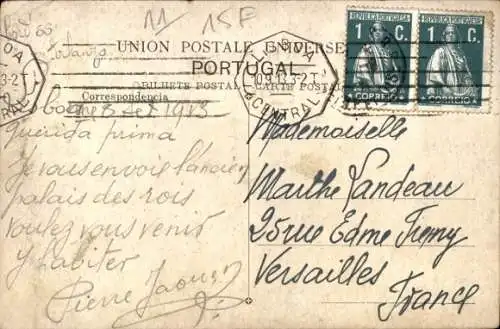 11 15F
UNION POSTALE UNIVERSE
PORTUGAL
BILHETE POSTAL CARTE POSTA
Correspondencia
LISBOA
CENTRAL
REPUBLICA PORTUGUESA
1 C.
CORREIO
REPUBLICA PORTUGUESA
1 C.
CORREIO
8 Set 1913
Querida prima
Je vous envoie l'ancien
palais des rois
voulez vous venir
y habiter
Pierre
Mademoiselle
Marthe Landeau
25 rue Edme
Versailles
France